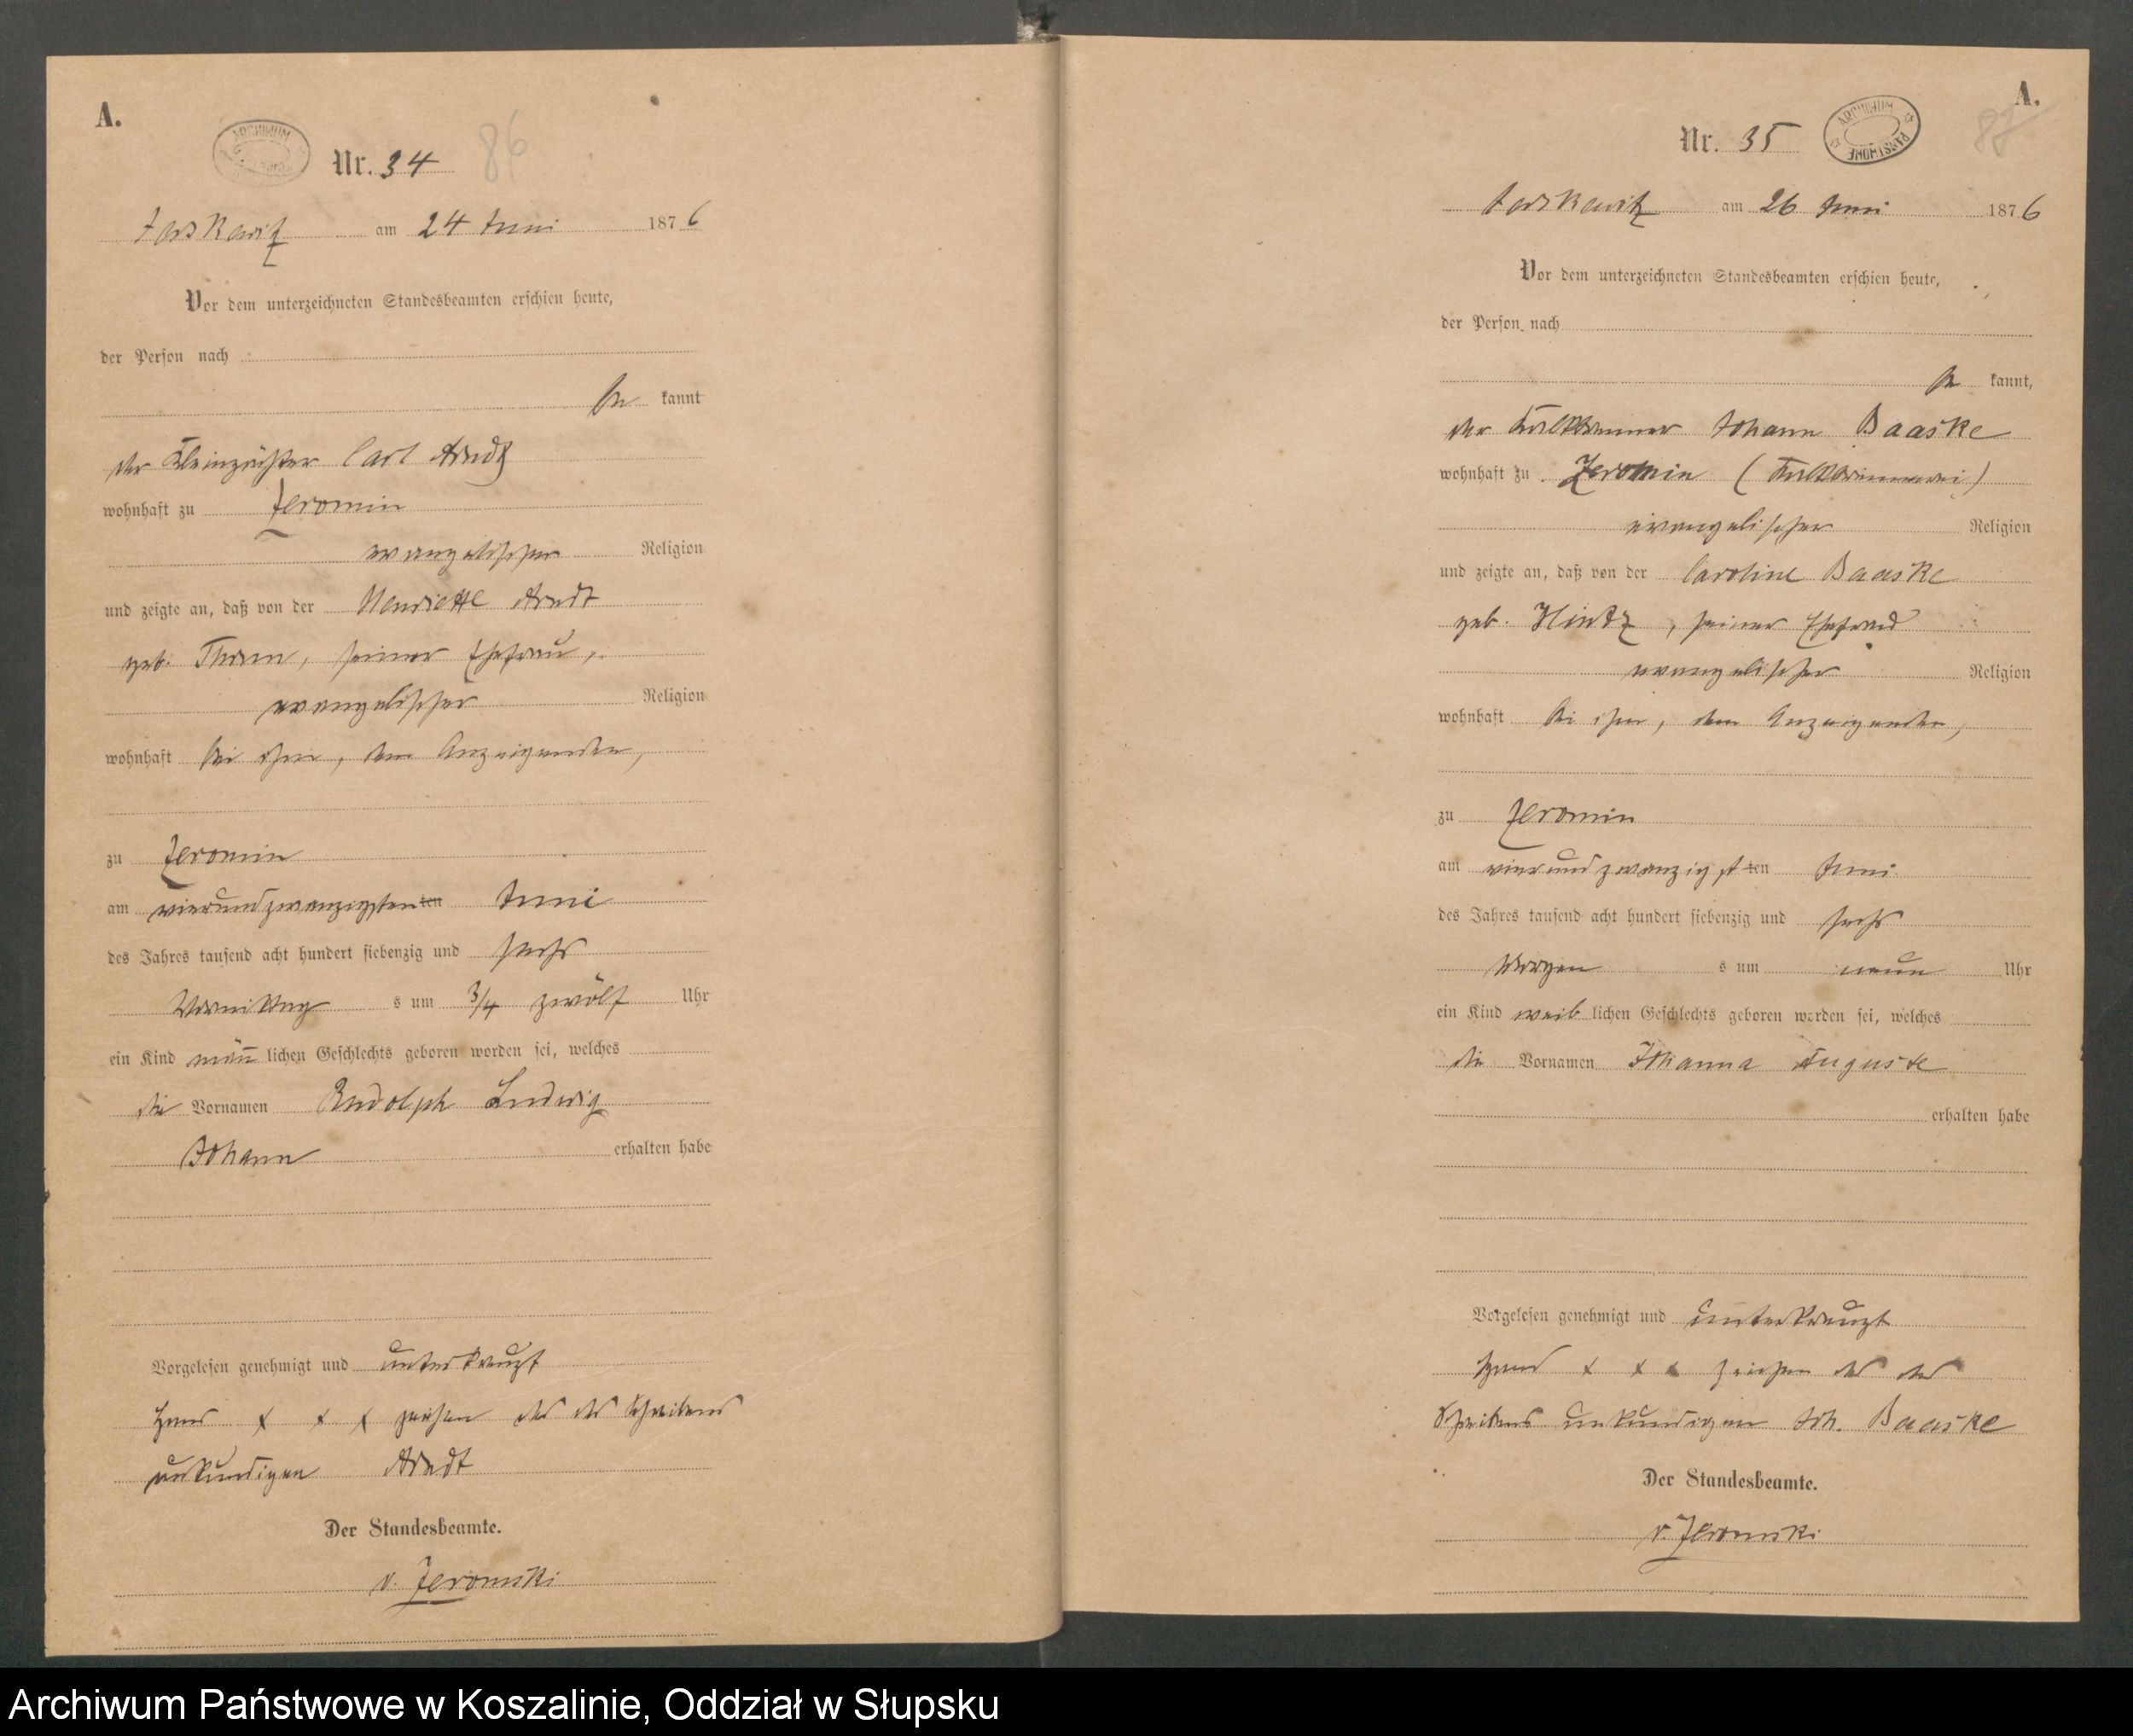 A.
ARCHIWUM
Nr. 34
86
Jaskawitz am 24 Juni 1876
Vor dem unterzeichneten Standesbeamten erschien heute,
der Person nach
be kannt
der Kleinpächter Carl Arndt
wohnhaft zu Zeromin
evangelischer Religion
und zeigte an, daß von der Henriette Arndt
geb. Thrun, seiner Ehefrau,
evangelischer Religion
wohnhaft bei ihm, dem Anzeigenden,
zu Zeromin
am vierundzwanzigsten ten Juni
des Jahres tausend acht hundert siebenzig und sechs
Vormittag s um 3/4 zwölf Uhr
ein Kind männ lichen Geschlechts geboren worden sei, welches
die Vornamen Rudolph Ludwig
Johann erhalten habe
Vorgelesen genehmigt und unterkreuzt
Hand x x x zeichen des des Schreibens
unkundigen Arndt
Der Standesbeamte.
v. Zeromski
A.
Nr. 35
ARCHIWUM PAŃSTWOWE
am 26 Juni 1876
Vor dem unterzeichneten Standesbeamten erschien heute,
der Person nach
be kannt,
der Kalkbrenner Johann Baaske
wohnhaft zu Zeromin (Kalkbrennerei)
evangelischer Religion
und zeigte an, daß von der Caroline Baaske
geb. Hintz, seiner Ehefrau
evangelischer Religion
wohnhaft bei ihm, dem Anzeigenden,
zu Zeromin
am vierundzwanzigst ten Juni
des Jahres tausend acht hundert siebenzig und sechs
Morgen s um neun Uhr
ein Kind weib lichen Geschlechts geboren worden sei, welches
die Vornamen Johanna Auguste
erhalten habe
Vorgelesen genehmigt und unterkreuzt
Hand x x x zeichen des des
Schreibens unkundigen Joh. Baaske
Der Standesbeamte.
v. Zeromski
Archiwum Państwowe w Koszalinie, Oddział w Słupsku